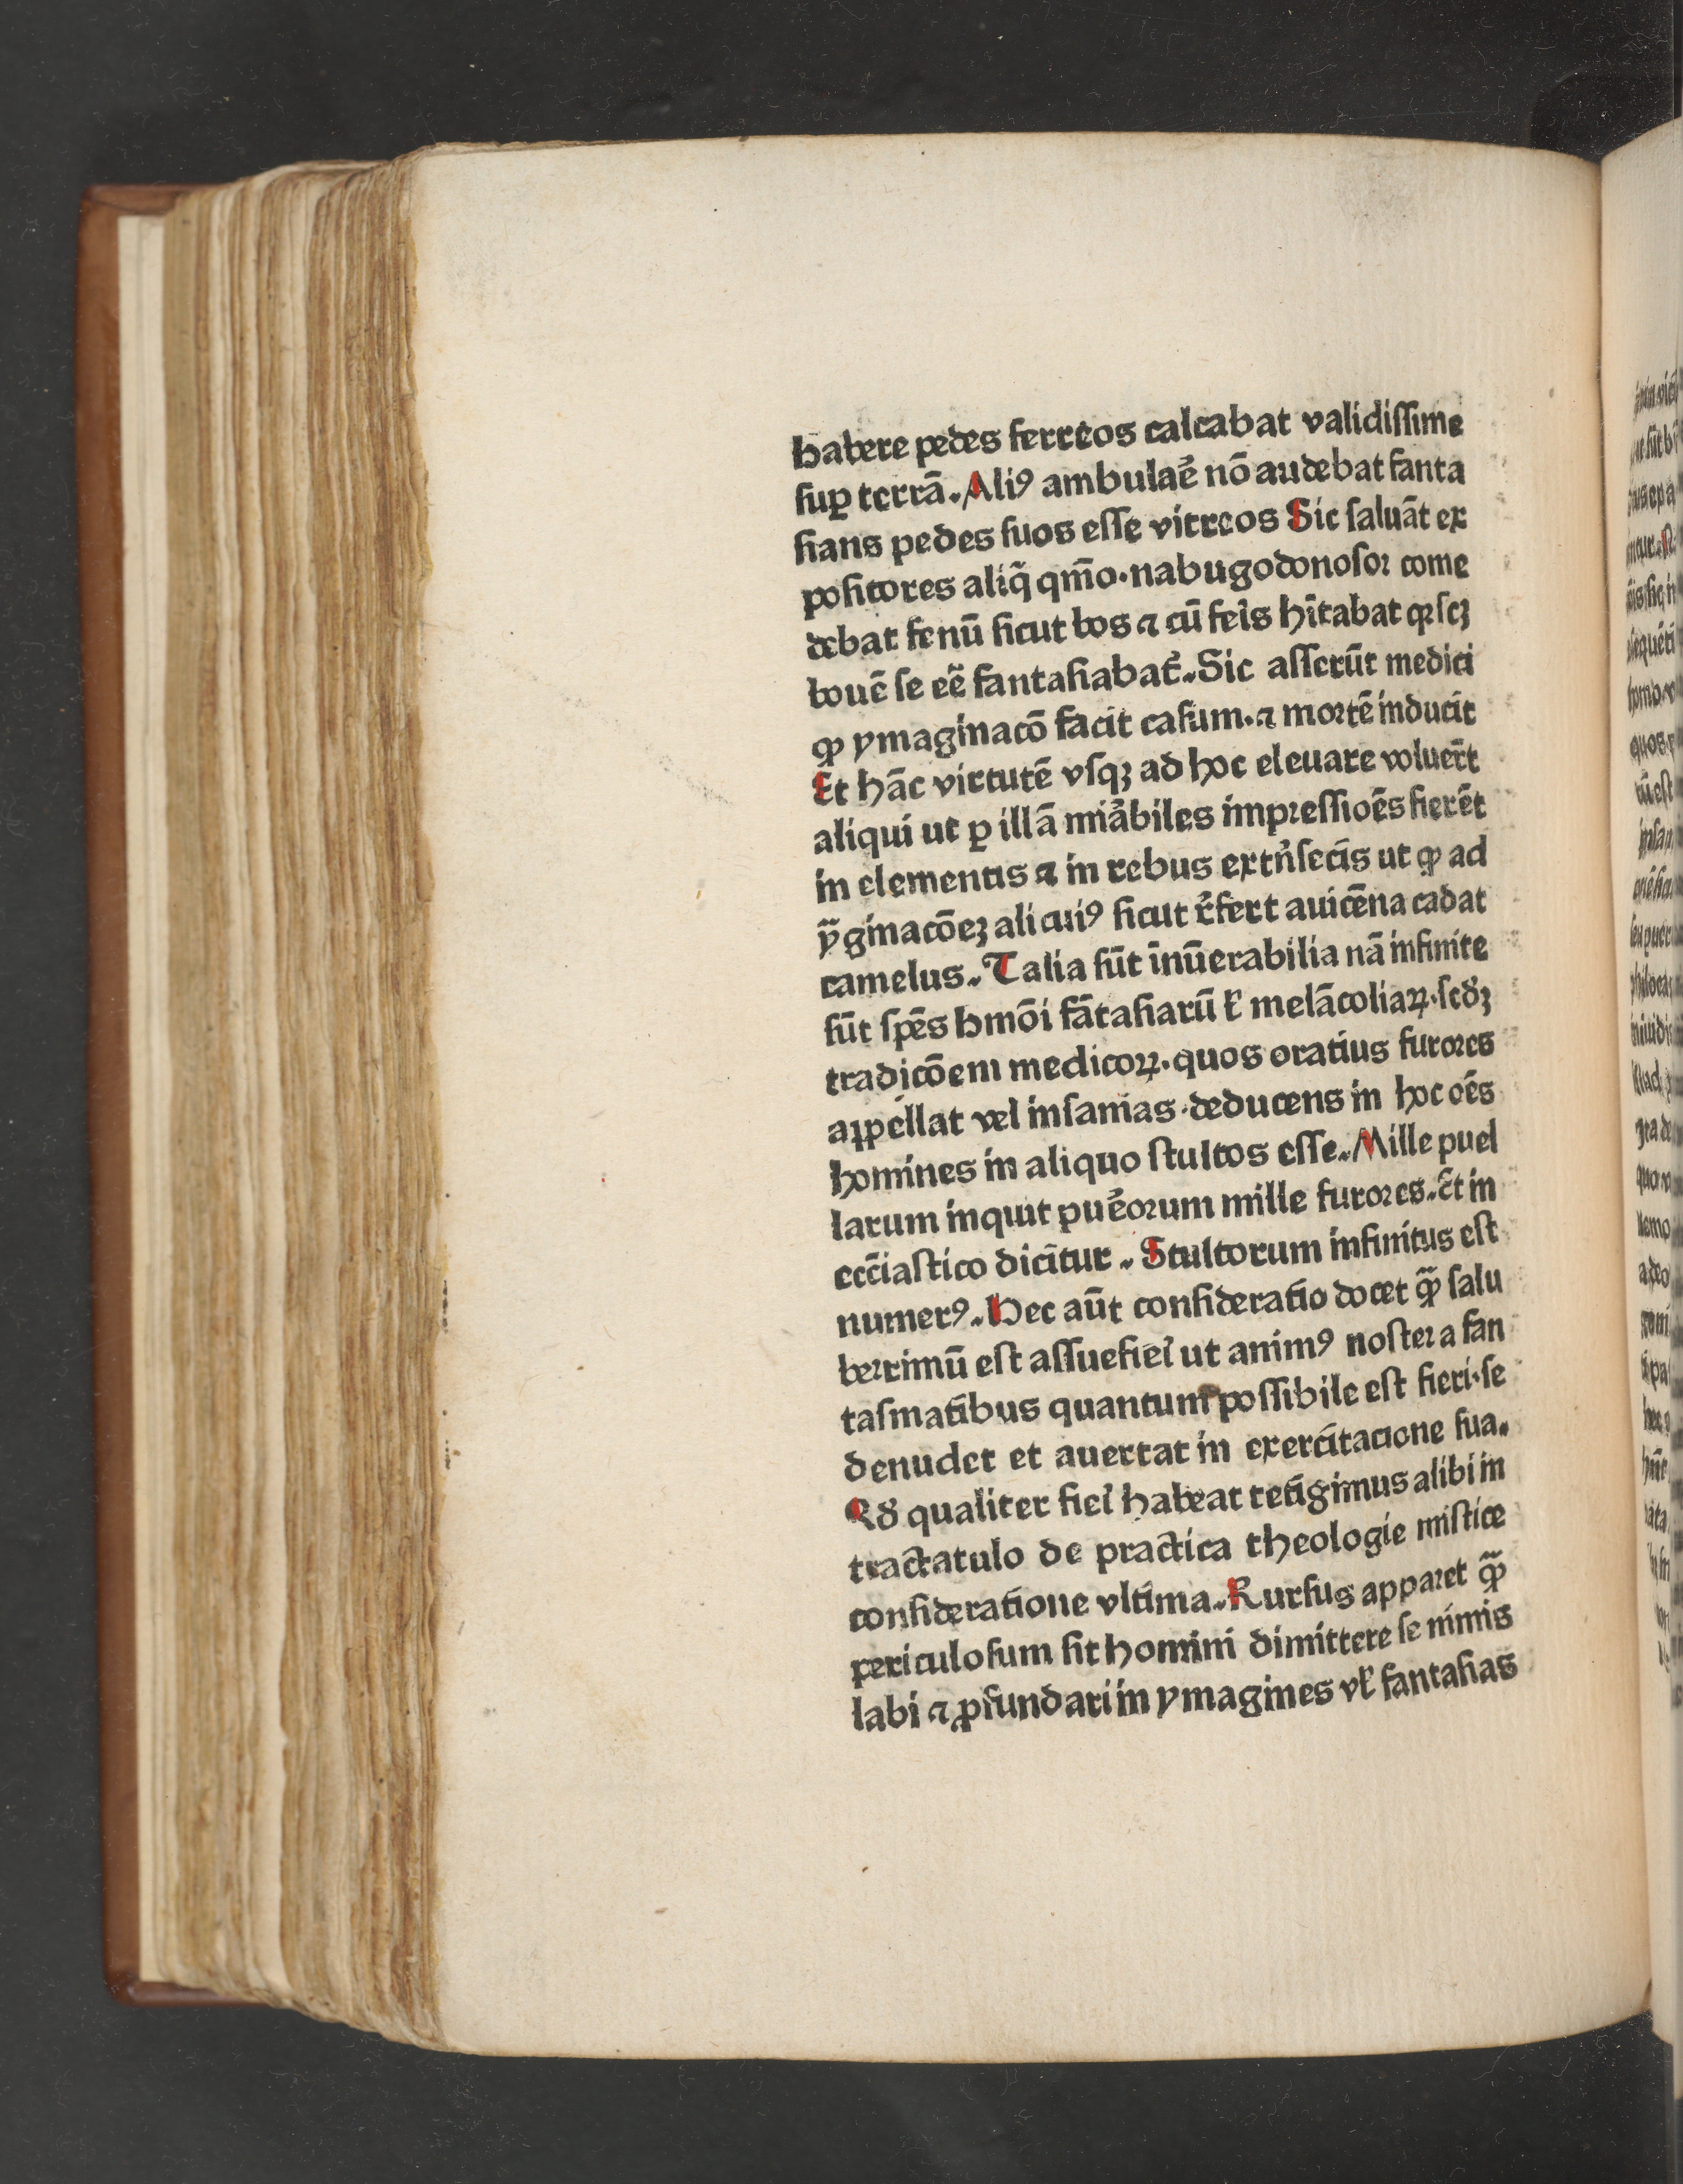 habere pedes ferreos calcabat validiſſime
ſuꝑ terrã. Aliꝰ ambulaeᷣ nõ audebat fanta
ſians pedes ſuos eſſe vitreos Sic ſaluãt ex
poſitores aliq̃ qm̃o·nabugodonoſoꝛ come
debat fenũ ſicut bos ⁊ cũ feĩs hĩtabat qꝛ ſcꝫ
bouẽ ſe eẽ fantaſiabatᷣ. Sic aſſerũt medici
ꝙ ymaginacõ facit caſum·⁊ moꝛtẽ inducit
Et hãc virtutẽ vſqꝫ ad hoc eleuare voluer̃t
aliqui ut ꝑ illã miaᷣbiles impꝛeſſiões fierẽt
in elementis ⁊ in rebus extnᷣſecis ut ꝙ ad
ỹginacõeꝫ alicuiꝰ ſicut r̃fert auicẽna cadat
camelus. Talia ſũt ĩnũerabilia nã infinite
ſũt ſpẽs hmõi fãtaſiarũ ł melãcoliaꝝ·ſcdᷣꝫ
tradicõem medicoꝝ·quos oratius furoꝛes
aꝑpellat vel inſanias·deducens in hoc oẽs
homines in aliquo ſtultos eſſe. Mille puel
larum inquit pueᷣoꝛum mille furoꝛes. Et in
ecc̃iaſtico dicitur. Stultorum infinitus eſt
numerꝰ. Hec aũt conſideratio docet ꝙ̃ ſalu
beꝛrimũ eſt aſſuefieĩ ut animꝰ noſteꝛ a fan
taſmatibus quantum poſſibile eſt fieri·ſe
denudet et auertat in exercitacione ſua.
Qdᷣ qualiter fieĩ habeat tetigimus alibi in
tractatulo de practica theologie miſtice
conſideratione vltima. Rurſus appaꝛet ꝙ̃
periculoſum ſit homini dimittere ſe nimis
labi ⁊ ꝓfundari in ymagines vł fantaſias